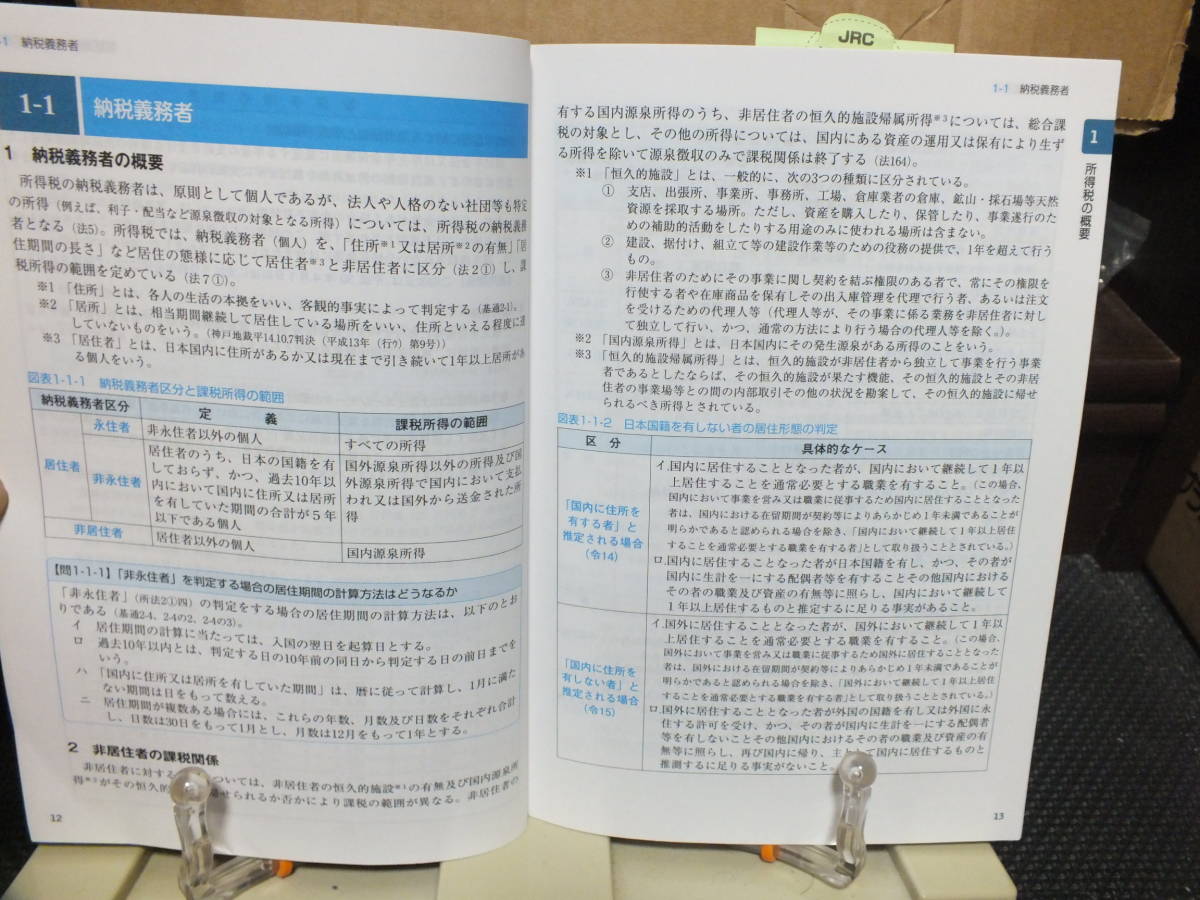 -1 納税義務者
1-1 納税義務者
1 納税義務者の概要
所得税の納税義務者は、原則として個人であるが、法人や人格のない社団等も特定
の所得(例えば、利子・配当など源泉徴収の対象となる所得)については、所得税の納税義務
者となる(法5)。所得税では、納税義務者(個人)を、「住所※1又は居所※2の有無」「居
住期間の長さ」など居住の態様に応じて居住者※3と非居住者に区分(法2①)し、課
税所得の範囲を定めている(法7①)。
※1 「住所」とは、各人の生活の本拠をいい、客観的事実によって判定する(基通2-1)。
※2 「居所」とは、相当期間継続して居住している場所をいい、住所といえる程度に達
していないものをいう。(神戸地裁平14.10.7判決(平成13年(行ウ)第9号))
※3 「居住者」とは、日本国内に住所があるか又は現在まで引き続いて1年以上居所があ
る個人をいう。
図表1-1-1 納税義務者区分と課税所得の範囲
納税義務者区分 定義 課税所得の範囲
居住者
永住者 非永住者以外の個人 すべての所得
非永住者
居住者のうち、日本の国籍を有
しておらず、かつ、過去10年以
内において国内に住所又は居所
を有していた期間の合計が5年
以下である個人
国外源泉所得以外の所得及び国
外源泉所得で国内において支払
われ又は国外から送金された所
得
非居住者 居住者以外の個人 国内源泉所得
【問1-1-1】「非永住者」を判定する場合の居住期間の計算方法はどうなるか
「非永住者」(所法2①四)の判定をする場合の居住期間の計算方法は、以下のとお
りである(基通2-4、2-4の2、2-4の3)。
イ 居住期間の計算に当たっては、入国の翌日を起算日とする。
ロ 過去10年以内とは、判定する日の10年前の同日から判定する日の前日までを
いう。
ハ 「国内に住所又は居所を有していた期間」は、暦に従って計算し、1月に満た
ない期間は日をもって数える。
ニ 居住期間が複数ある場合には、これらの年数、月数及び日数をそれぞれ合計
し、日数は30日をもって1月とし、月数は12月をもって1年とする。
2 非居住者の課税関係
非居住者に対する ついては、非居住者の恒久的施設※1の有無及び国内源泉所
得※2がその恒久的 せられるか否かにより課税の範囲が異なる。非居住者の
12
JRC
1-1 納税義務者
1
所得税の概要
有する国内源泉所得のうち、非居住者の恒久的施設帰属所得※3については、総合課
税の対象とし、その他の所得については、国内にある資産の運用又は保有により生ず
る所得を除いて源泉徴収のみで課税関係は終了する(法164)。
※1 「恒久的施設」とは、一般的に、次の3つの種類に区分されている。
① 支店、出張所、事業所、事務所、工場、倉庫業者の倉庫、鉱山・採石場等天然
資源を採取する場所。ただし、資産を購入したり、保管したり、事業遂行のた
めの補助的活動をしたりする用途のみに使われる場所は含まない。
② 建設、据付け、組立て等の建設作業等のための役務の提供で、1年を超えて行う
もの。
③ 非居住者のためにその事業に関し契約を結ぶ権限のある者で、常にその権限を
行使する者や在庫商品を保有しその出入庫管理を代理で行う者、あるいは注文
を受けるための代理人等(代理人等が、その事業に係る業務を非居住者に対し
て独立して行い、かつ、通常の方法により行う場合の代理人等を除く。)。
※2 「国内源泉所得」とは、日本国内にその発生の源泉がある所得のことをいう。
※3 「恒久的施設帰属所得」とは、恒久的施設が非居住者から独立して事業を行う事業
者であるとしたならば、その恒久的施設が果たす機能、その恒久的施設とその非居
住者の事業場等との間の内部取引その他の状況を勘案して、その恒久的施設に帰せ
られるべき所得とされている。
図表1-1-2 日本国籍を有しない者の居住形態の判定
区分 具体的なケース
「国内に住所を
有する者」と
推定される場合
(令14)
イ.国内に居住することとなった者が、国内において継続して1年以
上居住することを通常必要とする職業を有すること。(この場合、
国内において事業を営み又は職業に従事するため国内に居住することとなった
者は、国内における在留期間が契約等によりあらかじめ1年未満であることが
明らかであると認められる場合を除き、「国内において継続して1年以上居住
することを通常必要とする職業を有する者」として取り扱うこととされている。)
ロ.国内に居住することとなった者が日本国籍を有し、かつ、その者が
国内に生計を一にする配偶者等を有することその他国内における
その者の職業及び資産の有無等に照らし、国内において継続して
1年以上居住するものと推定するに足りる事実があること。
「国内に住所を
有しない者」と
推定される場合
(令15)
イ.国外に居住することとなった者が、国外において継続して1年以
上居住することを通常必要とする職業を有すること。(この場合、
国外において事業を営み又は職業に従事するため国外に居住することとなった
者は、国外における在留期間が契約等によりあらかじめ1年未満であることが
明らかであると認められる場合を除き、「国外において継続して1年以上居住
することを通常必要とする職業を有する者」として取り扱うこととされている。)
ロ.国外に居住することとなった者が外国の国籍を有し又は外国に永
住する許可を受け、かつ、その者が国内に生計を一にする配偶者
等を有しないことその他国内におけるその者の職業及び資産の有
無等に照らし、再び国内に帰り、主として国内に居住するものと
推測するに足りる事実がないこと。
13